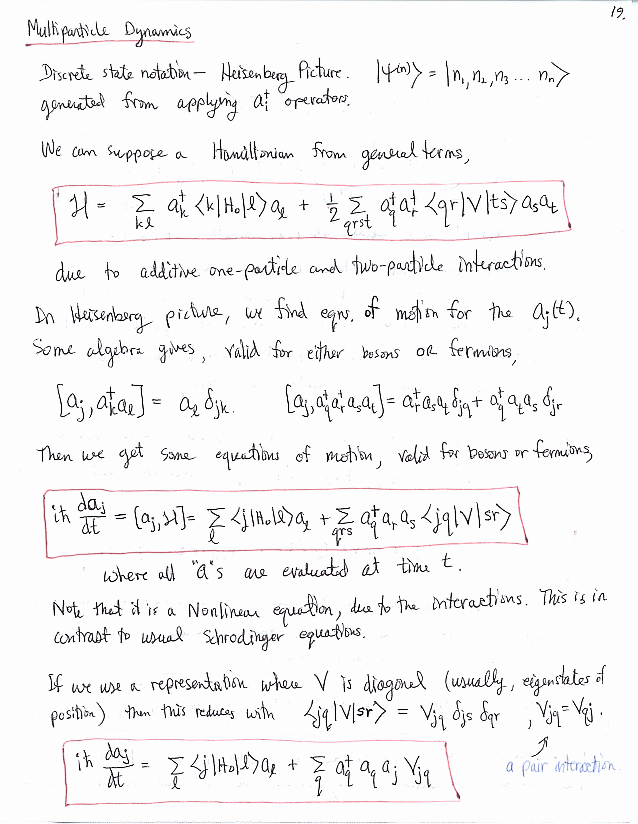 19.
Multiparticle Dynamics
Discrete state notation — Heisenberg Picture. |ψ⁽ⁿ⁾⟩ = |n₁, n₂, n₃ ... nₙ⟩
generated from applying aᵢ† operators.
We can suppose a Hamiltonian from general terms,
H = Σ_{kl} a_k† ⟨k|H₀|l⟩ a_l + 1/2 Σ_{qrst} a_q† a_r† ⟨qr|V|ts⟩ a_s a_t
due to additive one-particle and two-particle interactions.
In Heisenberg picture, we find eqns. of motion for the a_j(t).
Some algebra gives, valid for either bosons OR fermions,
[a_j, a_k† a_l] = a_l δ_jk. [a_j, a_q† a_r† a_s a_t] = a_r† a_s a_t δ_jq + a_q† a_t a_s δ_jr
Then we get some equations of motion, valid for bosons or fermions,
iħ da_j/dt = [a_j, H] = Σ_l ⟨j|H₀|l⟩ a_l + Σ_{qrs} a_q† a_r a_s ⟨jq|V|sr⟩
where all "a"s are evaluated at time t.
Note that it is a Nonlinear equation, due to the interactions. This is in
contrast to usual Schrodinger equations.
If we use a representation where V is diagonal (usually, eigenstates of
position) then this reduces with ⟨jq|V|sr⟩ = V_jq δ_js δ_qr , V_jq = V_qj .
a pair interaction.
iħ da_j/dt = Σ_l ⟨j|H₀|l⟩ a_l + Σ_q a_q† a_q a_j V_jq